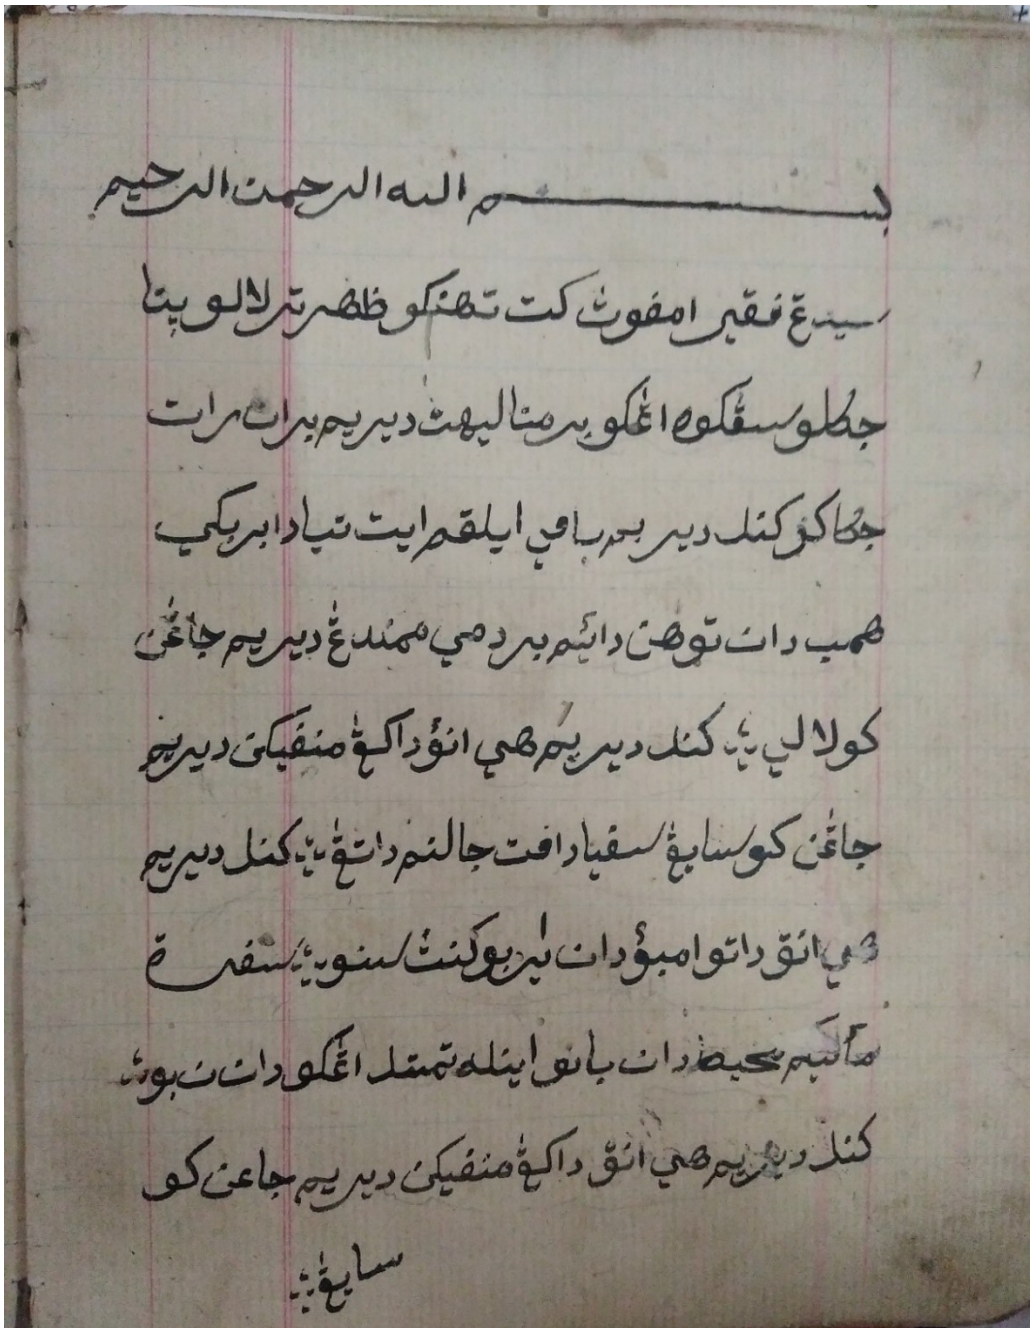 بسم الله الرحمن الرحيم
سيدڠ فقير امفوث كت تهنكو ظهر تر لالو پتا
جكلو سڤكوه اڠكو بر متا ليهت ديريم براث رات
كنل ديريم بامي ايلقم ايت تيادا بر بكي
همب دان توهن دائيم بر دمي ممندڠ ديريم جاڠن
كو لالي ؛ كنل ديريم هي انق داڬڠ منفيكن ديريم
جاڠن كو سايڠ سفيا دافت جالنم داتڠ ؛ كنل ديريم
هي انق داتو امبؤ دان بوكنث سنوي ؛ سفرة
محيط دان بانو اينله تمثل اڠكو دان بوي
كنل ديريم هي انق داڬڠ منفيكن ديريم جاعن كو
سايڠ ؛